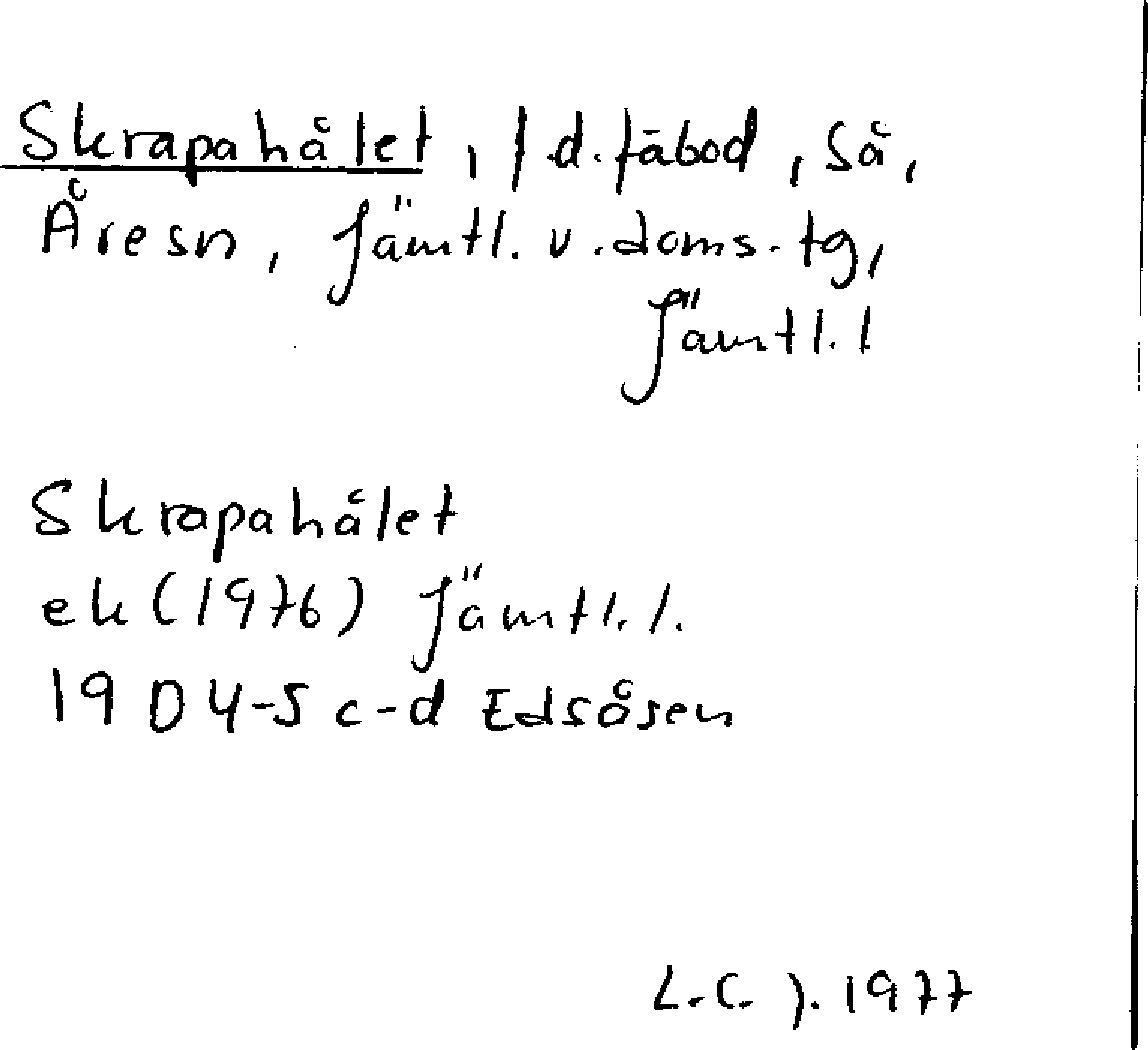 Skrapahålet, f.d. fäbod, Så,
Åresn, Jämtl. v. doms. tg,
Jämtl. l
Skrapahålet
ek (1976) Jämtl. l.
19 D 4-5 c-d Edsåsen
L.C. J. 1977